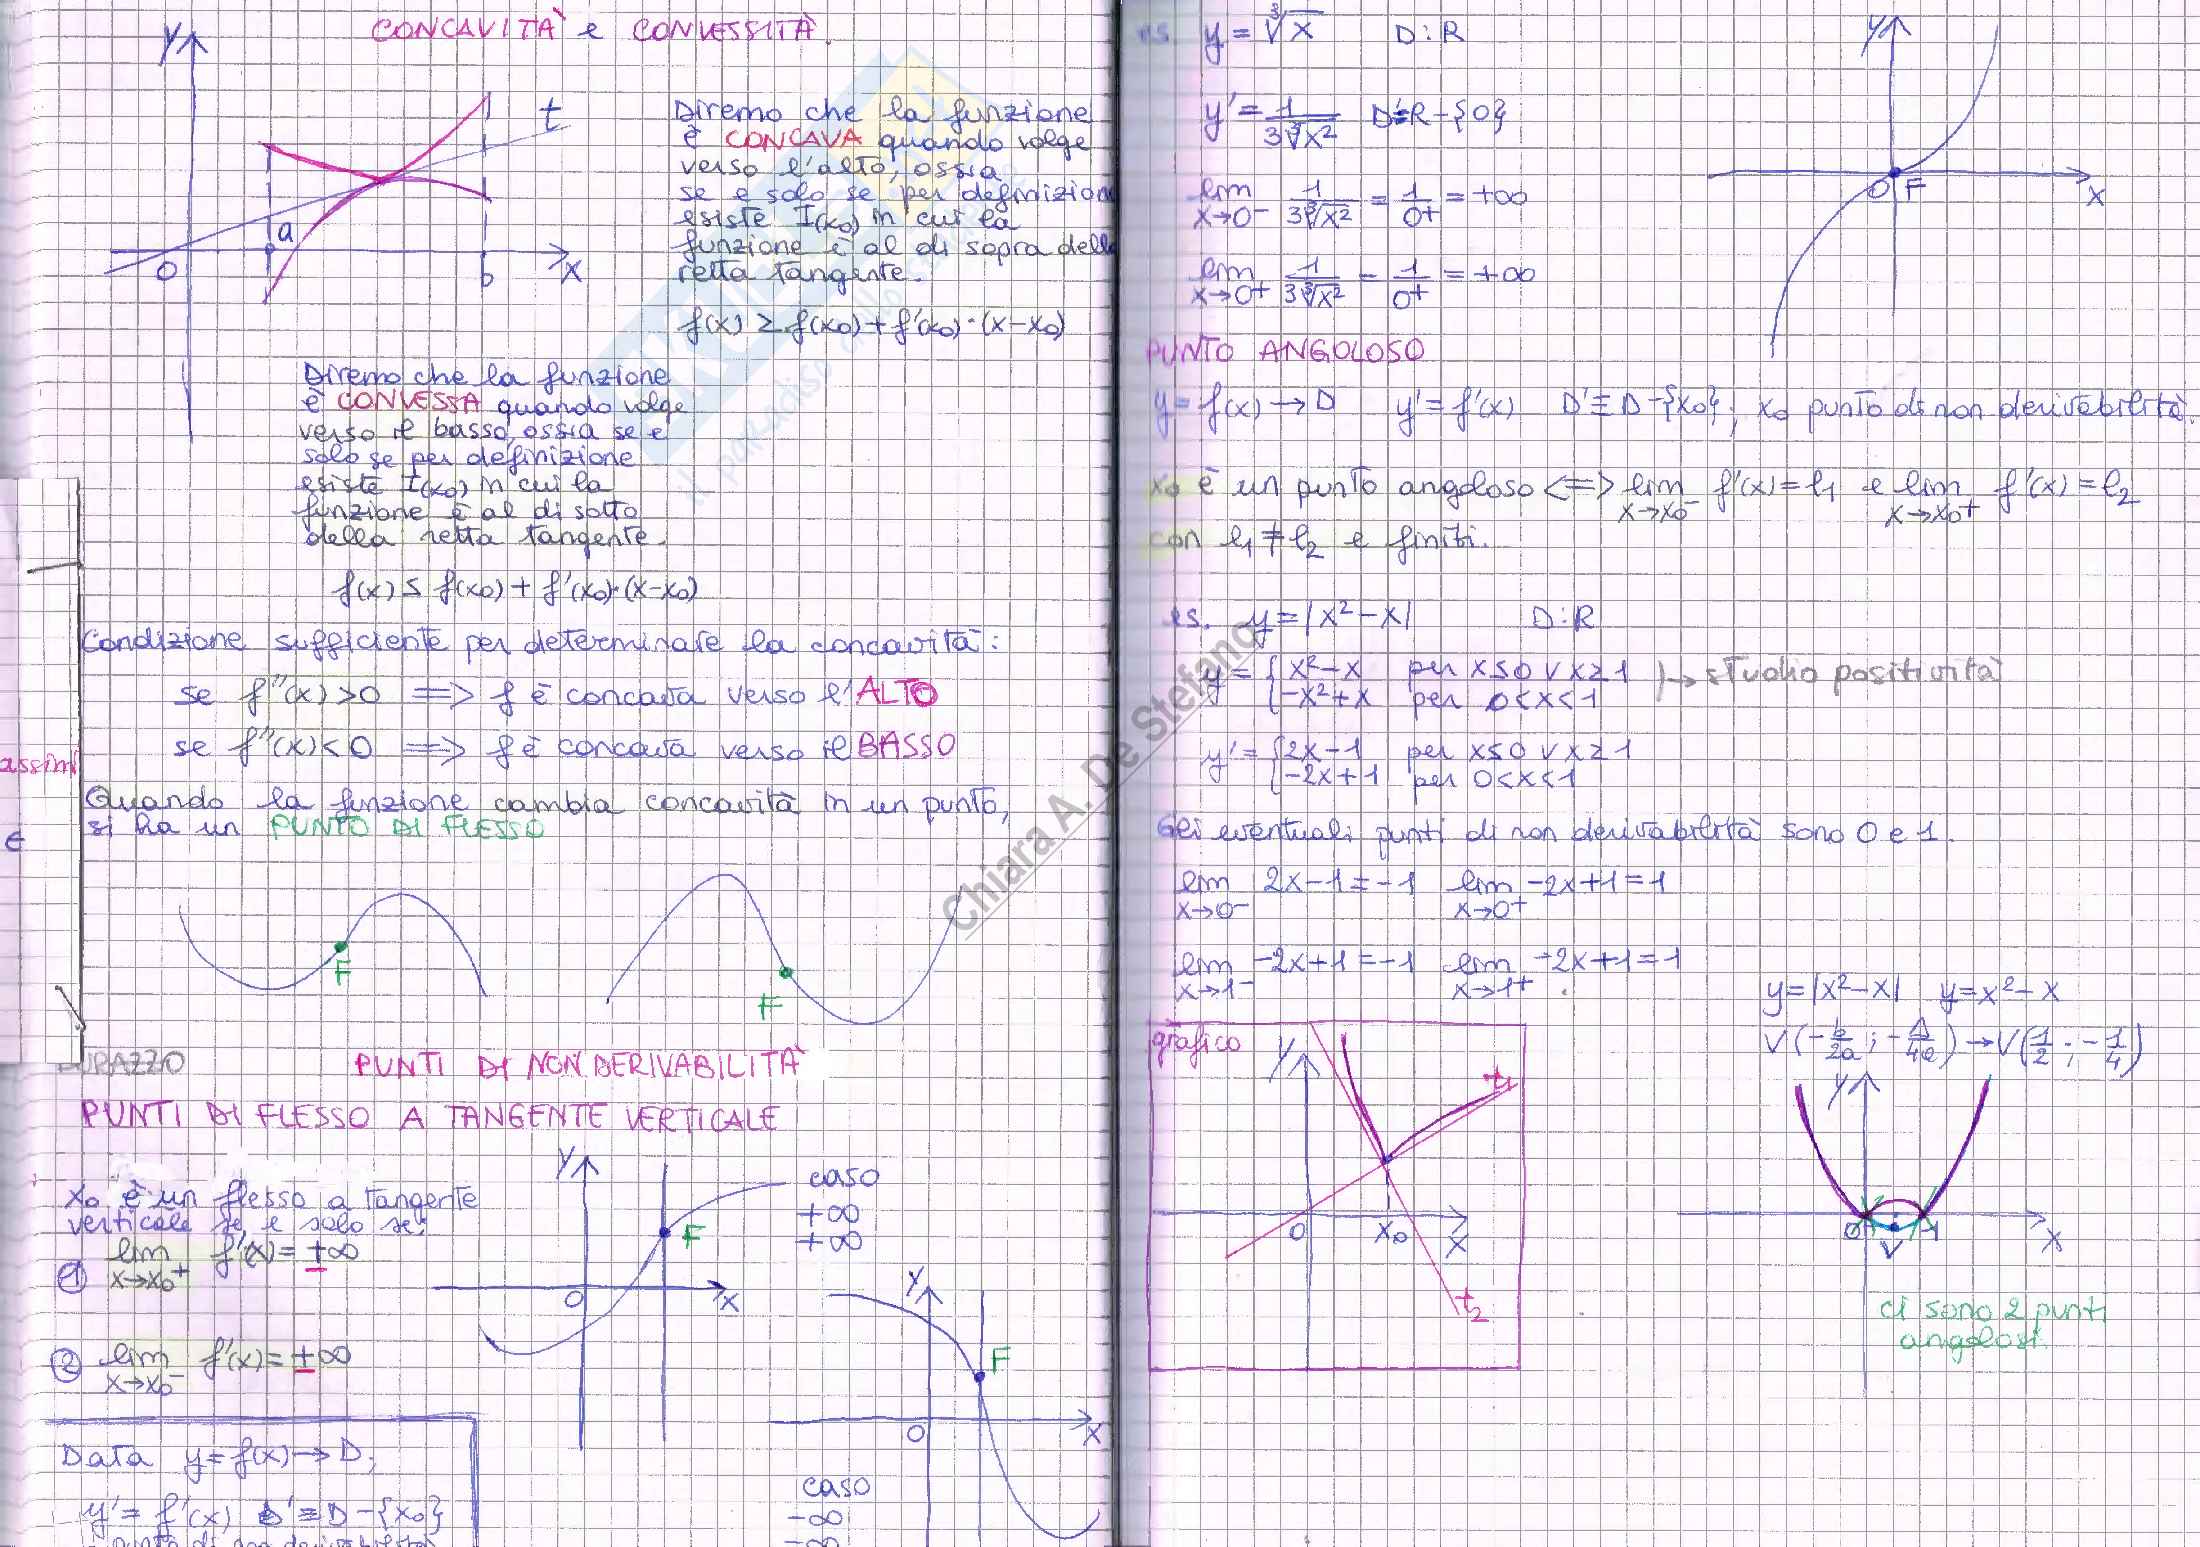 CONCAVITÀ e CONVESSITÀ.
y
t
a
O
b
x
Diremo che la funzione
è CONCAVA quando volge
verso l'alto, ossia
se e solo se per definizione
esiste I(x₀) in cui la
funzione è al di sopra della
retta tangente.
f(x) ≥ f(x₀) + f'(x₀)·(x-x₀)
Diremo che la funzione
è CONVESSA quando volge
verso il basso, ossia se e
solo se per definizione
esiste I(x₀) in cui la
funzione è al di sotto
della retta tangente.
f(x) ≤ f(x₀) + f'(x₀)·(x-x₀)
Condizione sufficiente per determinare la concavità:
se f''(x) > 0 ==> f è concava verso l'ALTO
se f''(x) < 0 ==> f è concava verso il BASSO
assimi
Quando la funzione cambia concavità in un punto,
si ha un PUNTO DI FLESSO
E
F
F
PUNTI DI NON DERIVABILITÀ
PUNTI DI FLESSO A TANGENTE VERTICALE
x₀ è un flesso a tangente
verticale se e solo se:
① lim f'(x) = ±∞
x→x₀⁺
② lim f'(x) = ±∞
x→x₀⁻
y
F
O
x
caso
+∞
+∞
y
F
O
x
caso
-∞
-∞
Data y = f(x) → D;
y' = f'(x) D' ≡ D-{x₀}
es. y = ∛x D:R
y' = 1/(3∛x²) D'≡R-{0}
lim 1/(3∛x²) = 1/0⁺ = +∞
x→0⁻
lim 1/(3∛x²) = 1/0⁺ = +∞
x→0⁺
y
O F
x
PUNTO ANGOLOSO
y = f(x) → D y' = f'(x) D' ≡ D-{x₀}; x₀ punto di non derivabilità.
x₀ è un punto angoloso <=> lim f'(x) = l₁ e lim f'(x) = l₂
x→x₀⁻ x→x₀⁺
con l₁ ≠ l₂ e finiti.
es. y = |x²-x| D:R
y = { x²-x per x≤0 ∨ x≥1 → studio positività
-x²+x per 0<x<1
y' = { 2x-1 per x≤0 ∨ x≥1
-2x+1 per 0<x<1
Gli eventuali punti di non derivabilità sono 0 e 1.
lim 2x-1 = -1 lim -2x+1 = 1
x→0⁻ x→0⁺
lim -2x+1 = -1 lim -2x+1 = 1
x→1⁻ x→1⁺
grafico
y
t₁
O
x₀
x
t₂
y = |x²-x| y = x²-x
V(-b/2a ; -Δ/4a) → V(1/2 ; -1/4)
y
O
1
V
x
ci sono 2 punti
angolosi.
Chiara A. De Stefano